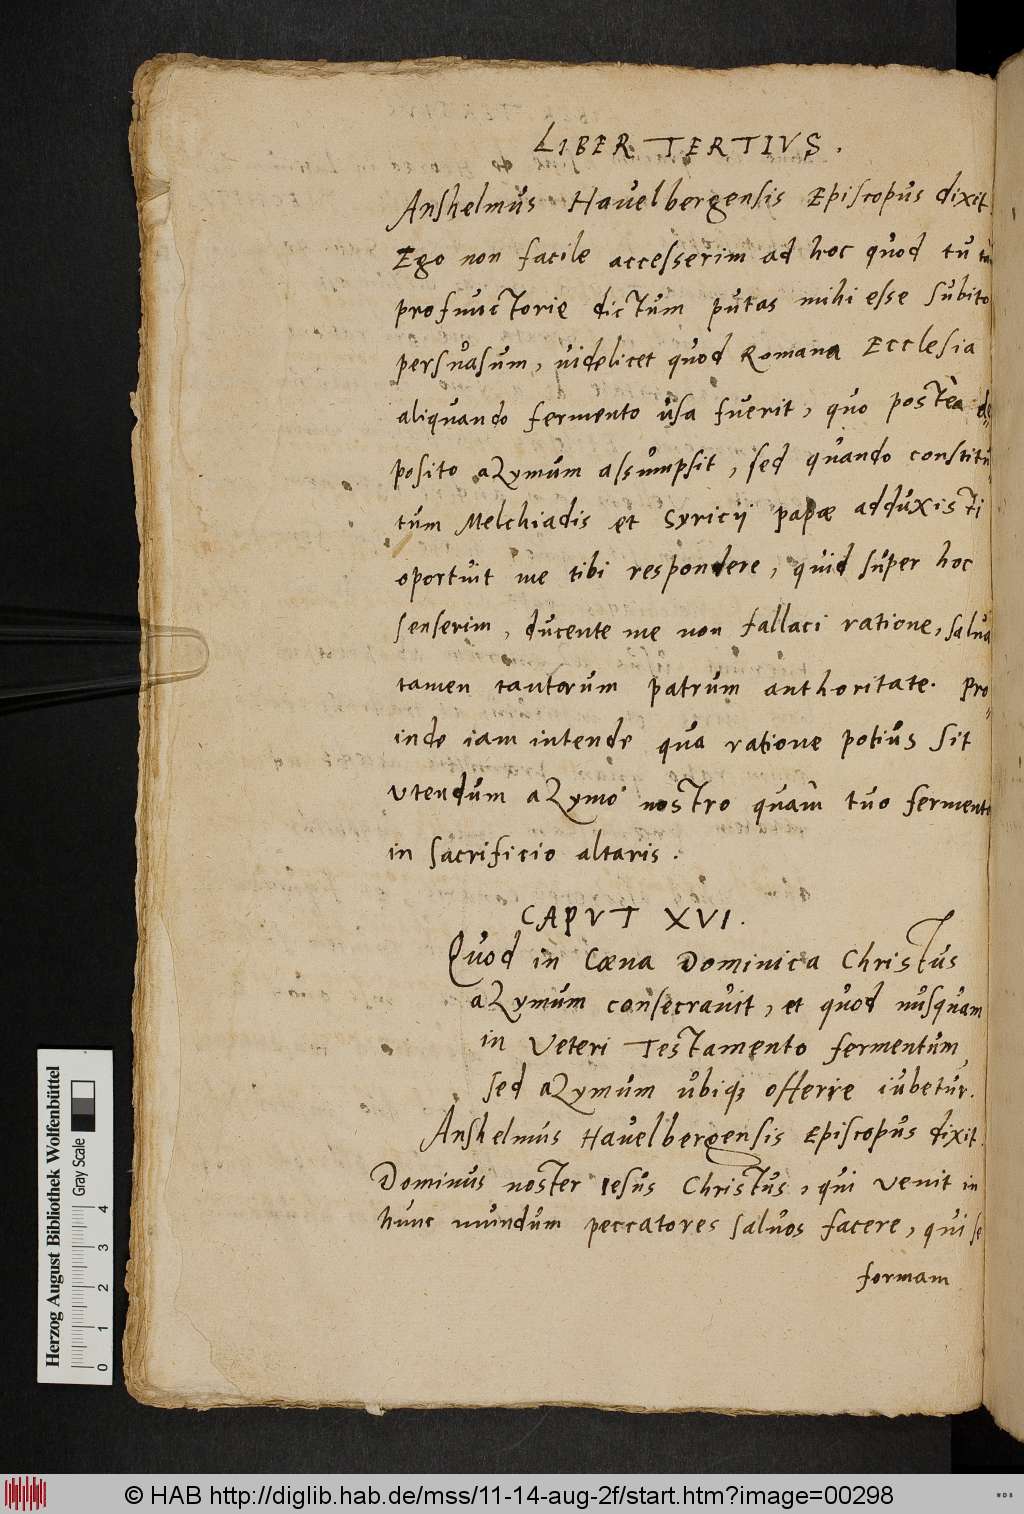 LIBER TERTIVS.
Anshelmus Havelbergensis Episcopus dixit.
Ego non facile accesserim ad hoc quod tu
profunctorie dictum putas mihi esse subito
persuasum, videlicet quod Romana Ecclesia
aliquando fermento usa fuerit, quo posteà de=
posito azymum assumpsit, sed quando constitu
tum Melchiadis et Syricij papæ adduxisti
oportuit me tibi respondere, quid super hoc
senserim, ducente me non fallaci ratione, salva
tamen tantorum patrum authoritate. Pro=
inde iam intende qua ratione potius sit
vtendum azymo nostro quàm tuo fermento
in sacrificio altaris.
CAPVT XVI.
Quod in Cœna Dominica Christus
azymum consecravit, et quod nusquam
in Veteri Testamento fermentum,
sed azymum ubiq; offerre iubetur.
Anshelmus Havelbergensis Episcopus dixit.
Dominus noster Iesus Christus, qui venit in
hunc mundum peccatores salvos facere, qui se
formam
Herzog August Bibliothek Wolfenbüttel
Gray Scale
0 1 2 3 4
© HAB http://diglib.hab.de/mss/11-14-aug-2f/start.htm?image=00298